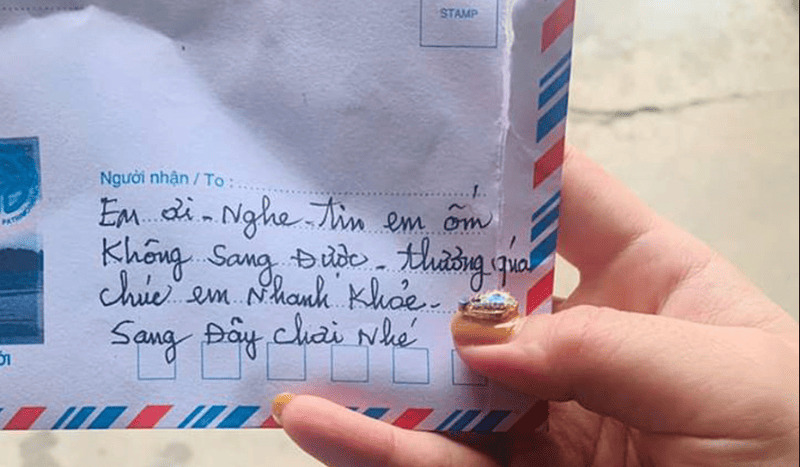 STAMP
Người nhận / To :
Em ơi - Nghe - tin em ốm
Không Sang Được - thương quá
chúc em Nhanh Khỏe -
Sang Đây chơi Nhé